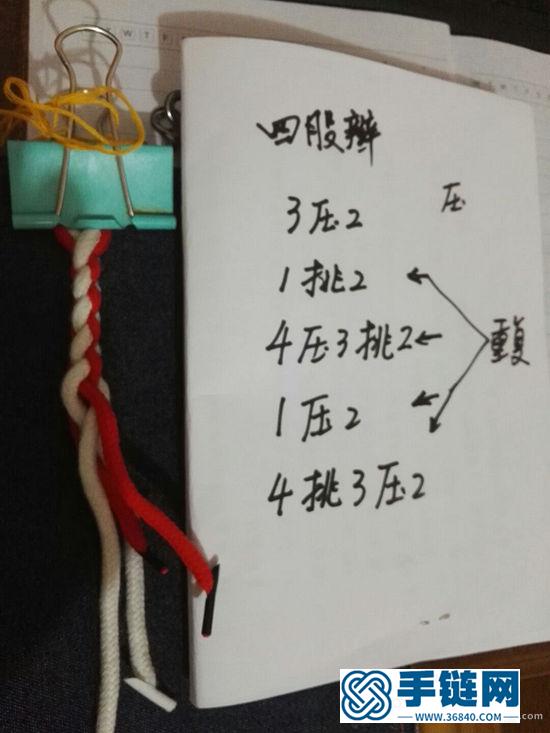 W T F
四股辫
3压2
压
1挑2
4压3挑2
重复
1压2
4挑3压2
手链网
WWW.36840.COM